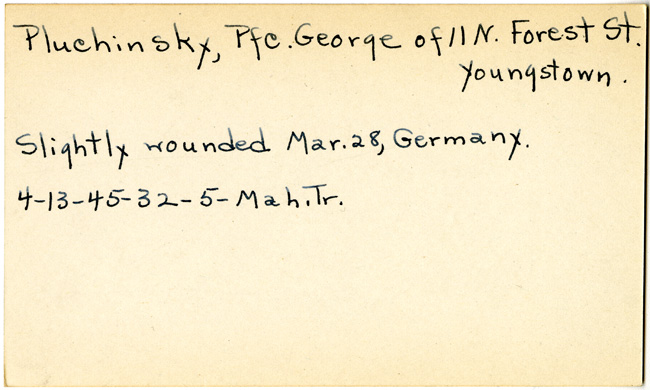 Pluchinsky, Pfc. George of 11 N. Forest St.
Youngstown.
Slightly wounded Mar. 28, Germany.
4-13-45-32-5-Mah. Tr.